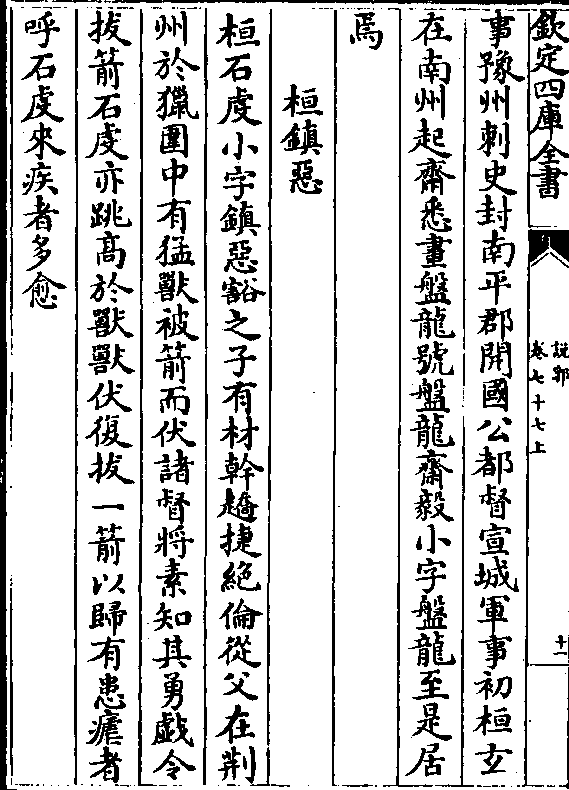 欽定四庫全書
說郛
卷七十七上
十一
事豫州刺史封南平郡開國公都督宣城軍事初桓玄
在南州起齋悉畫盤龍號盤龍齋毅小字盤龍至是居
焉
桓鎮惡
桓石虔小字鎮惡豁之子有材幹趫捷絕倫從父在荆
州於獵圍中有猛獸被箭而伏諸督將素知其勇戲令
拔箭石虔亦跳髙於獸獸伏復拔一箭以歸有患瘧者
呼石虔來疾者多愈